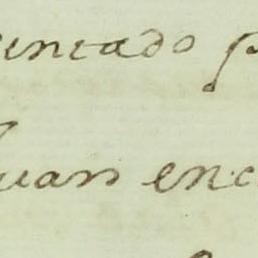 uentado p
Juan enc